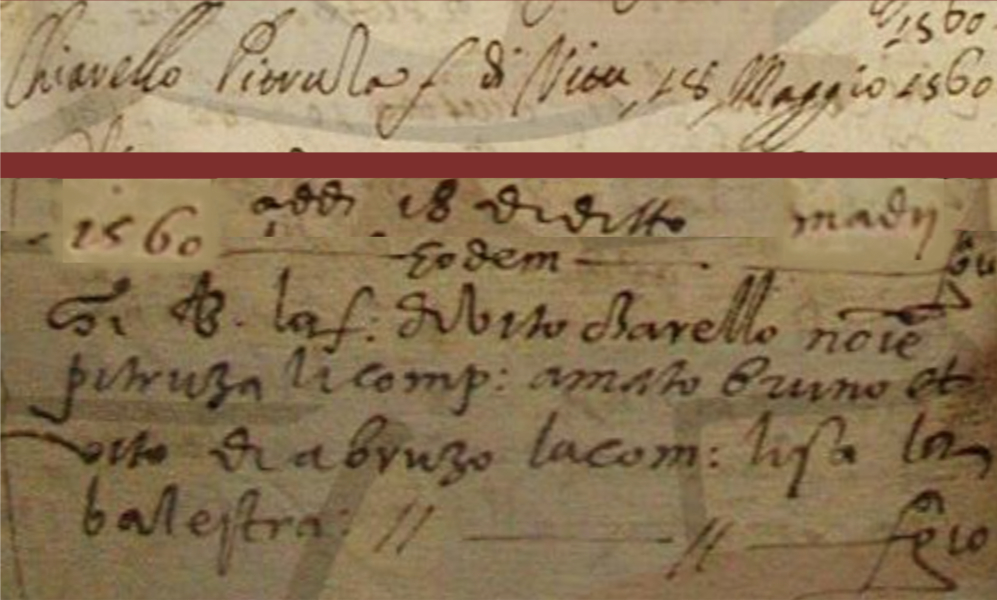 1560
Chiarello Pitruzza f di Vitu, 18, Maggio 1560
1560 addi 18 di ditto madij
Eodem
B. la f: di vito chiarello noie
pitruza li comp: amato bruno et
vito di abruzo la com: lisa la
balestra: // //